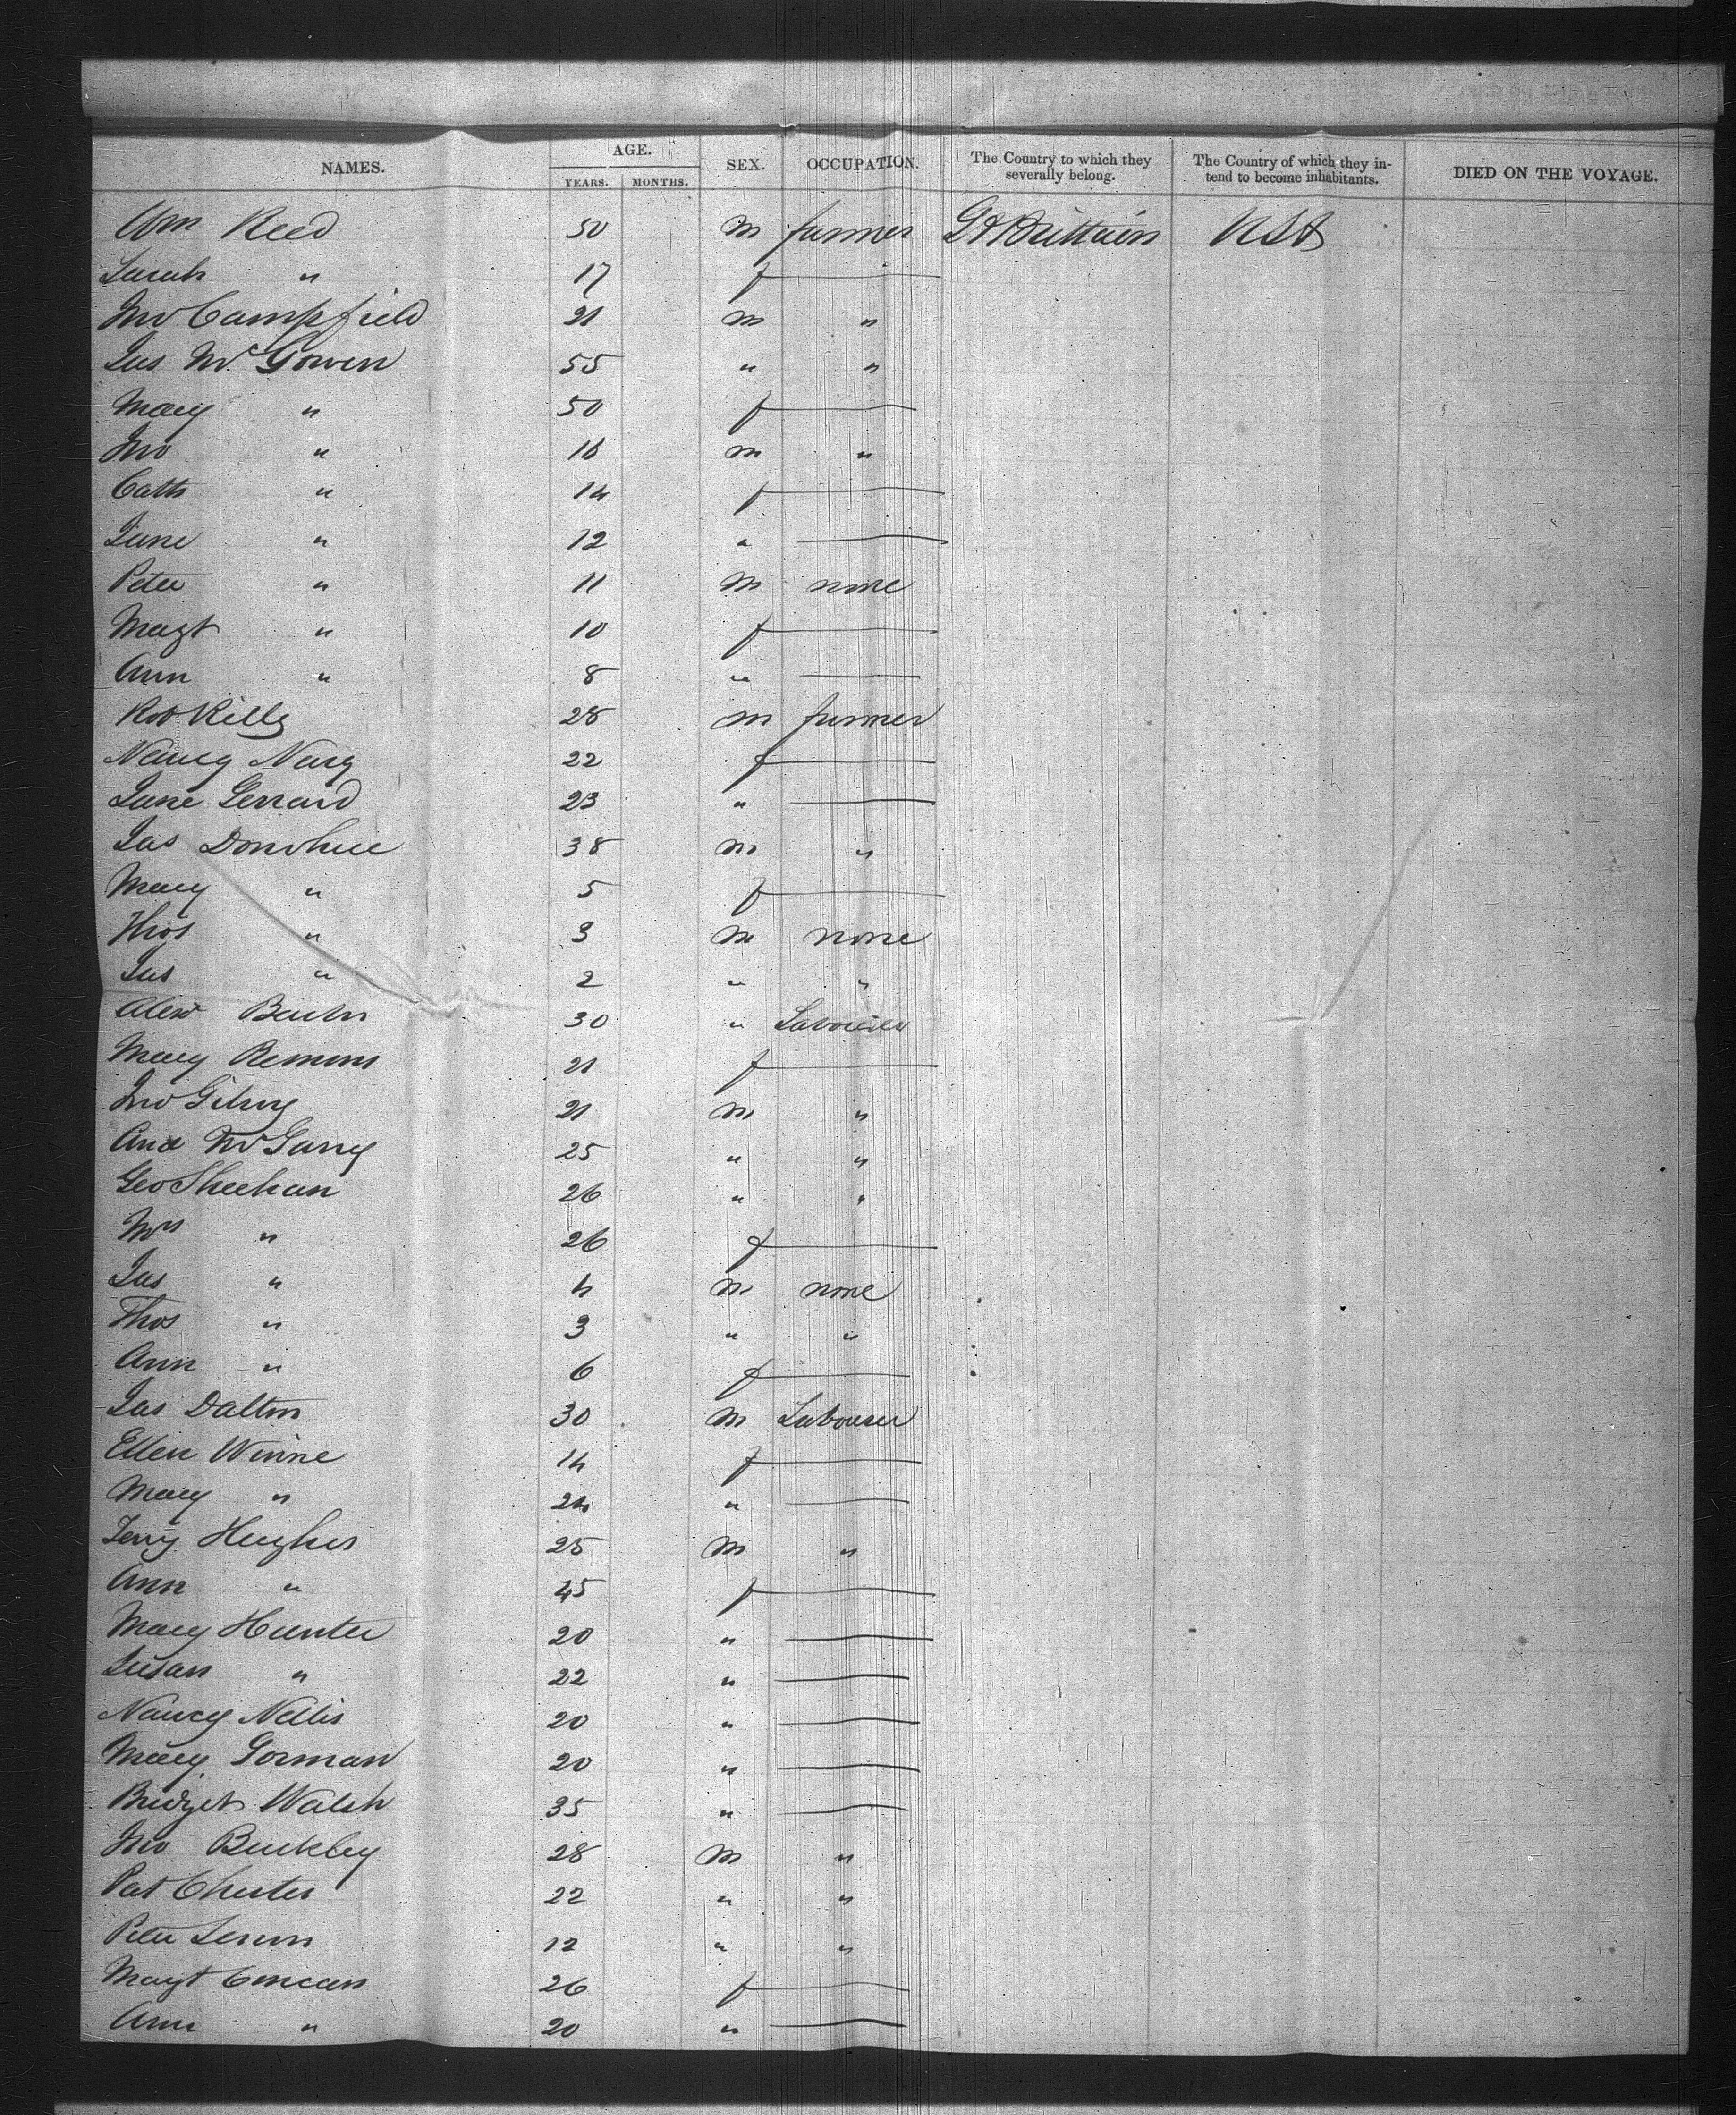 NAMES. AGE. SEX. OCCUPATION. The Country to which they severally belong. The Country of which they in-tend to become inhabitants. DIED ON THE VOYAGE.
YEARS. MONTHS.
Wm Reed 50 m farmer Gt Brittain USA
Sarah " 17 f
Jno Campfield 21 m "
Jas Mc Gowen 55 " "
Mary " 50 f
Jno " 16 m "
Cath " 14 f
Jane " 12 "
Peter " 11 m none
Magt " 10 f
Ann " 8 "
Robt Kelly 28 m farmer
Nancy Nary 22 f
Jane Gerrard 23 "
Jas Donohue 38 m "
Mary " 5 f
Thos " 3 m none
Jas " 2 " "
Alexr 30 " Labourer
Mary Remons 21 f
Jno Gilroy 21 m "
And McGarry 25 " "
Geo Sheehan 26 " "
Mrs " 26 f
Jas " 4 m none
Thos " 3 " "
Ann " 6 f
Jas Dalton 30 m Labourer
Ellen Winne 14 f
Mary " 24 "
Terry Hughes 25 m "
Ann " 45 f
Mary Hunter 20 "
Susan " 22 "
Nancy Nellis 20 "
Mary Gorman 20 "
Bridget Walsh 35 "
Jno Buckley 28 m "
Pat Chester 22 " "
Peter 12 " "
Magt 26 f
Ann " 20 "